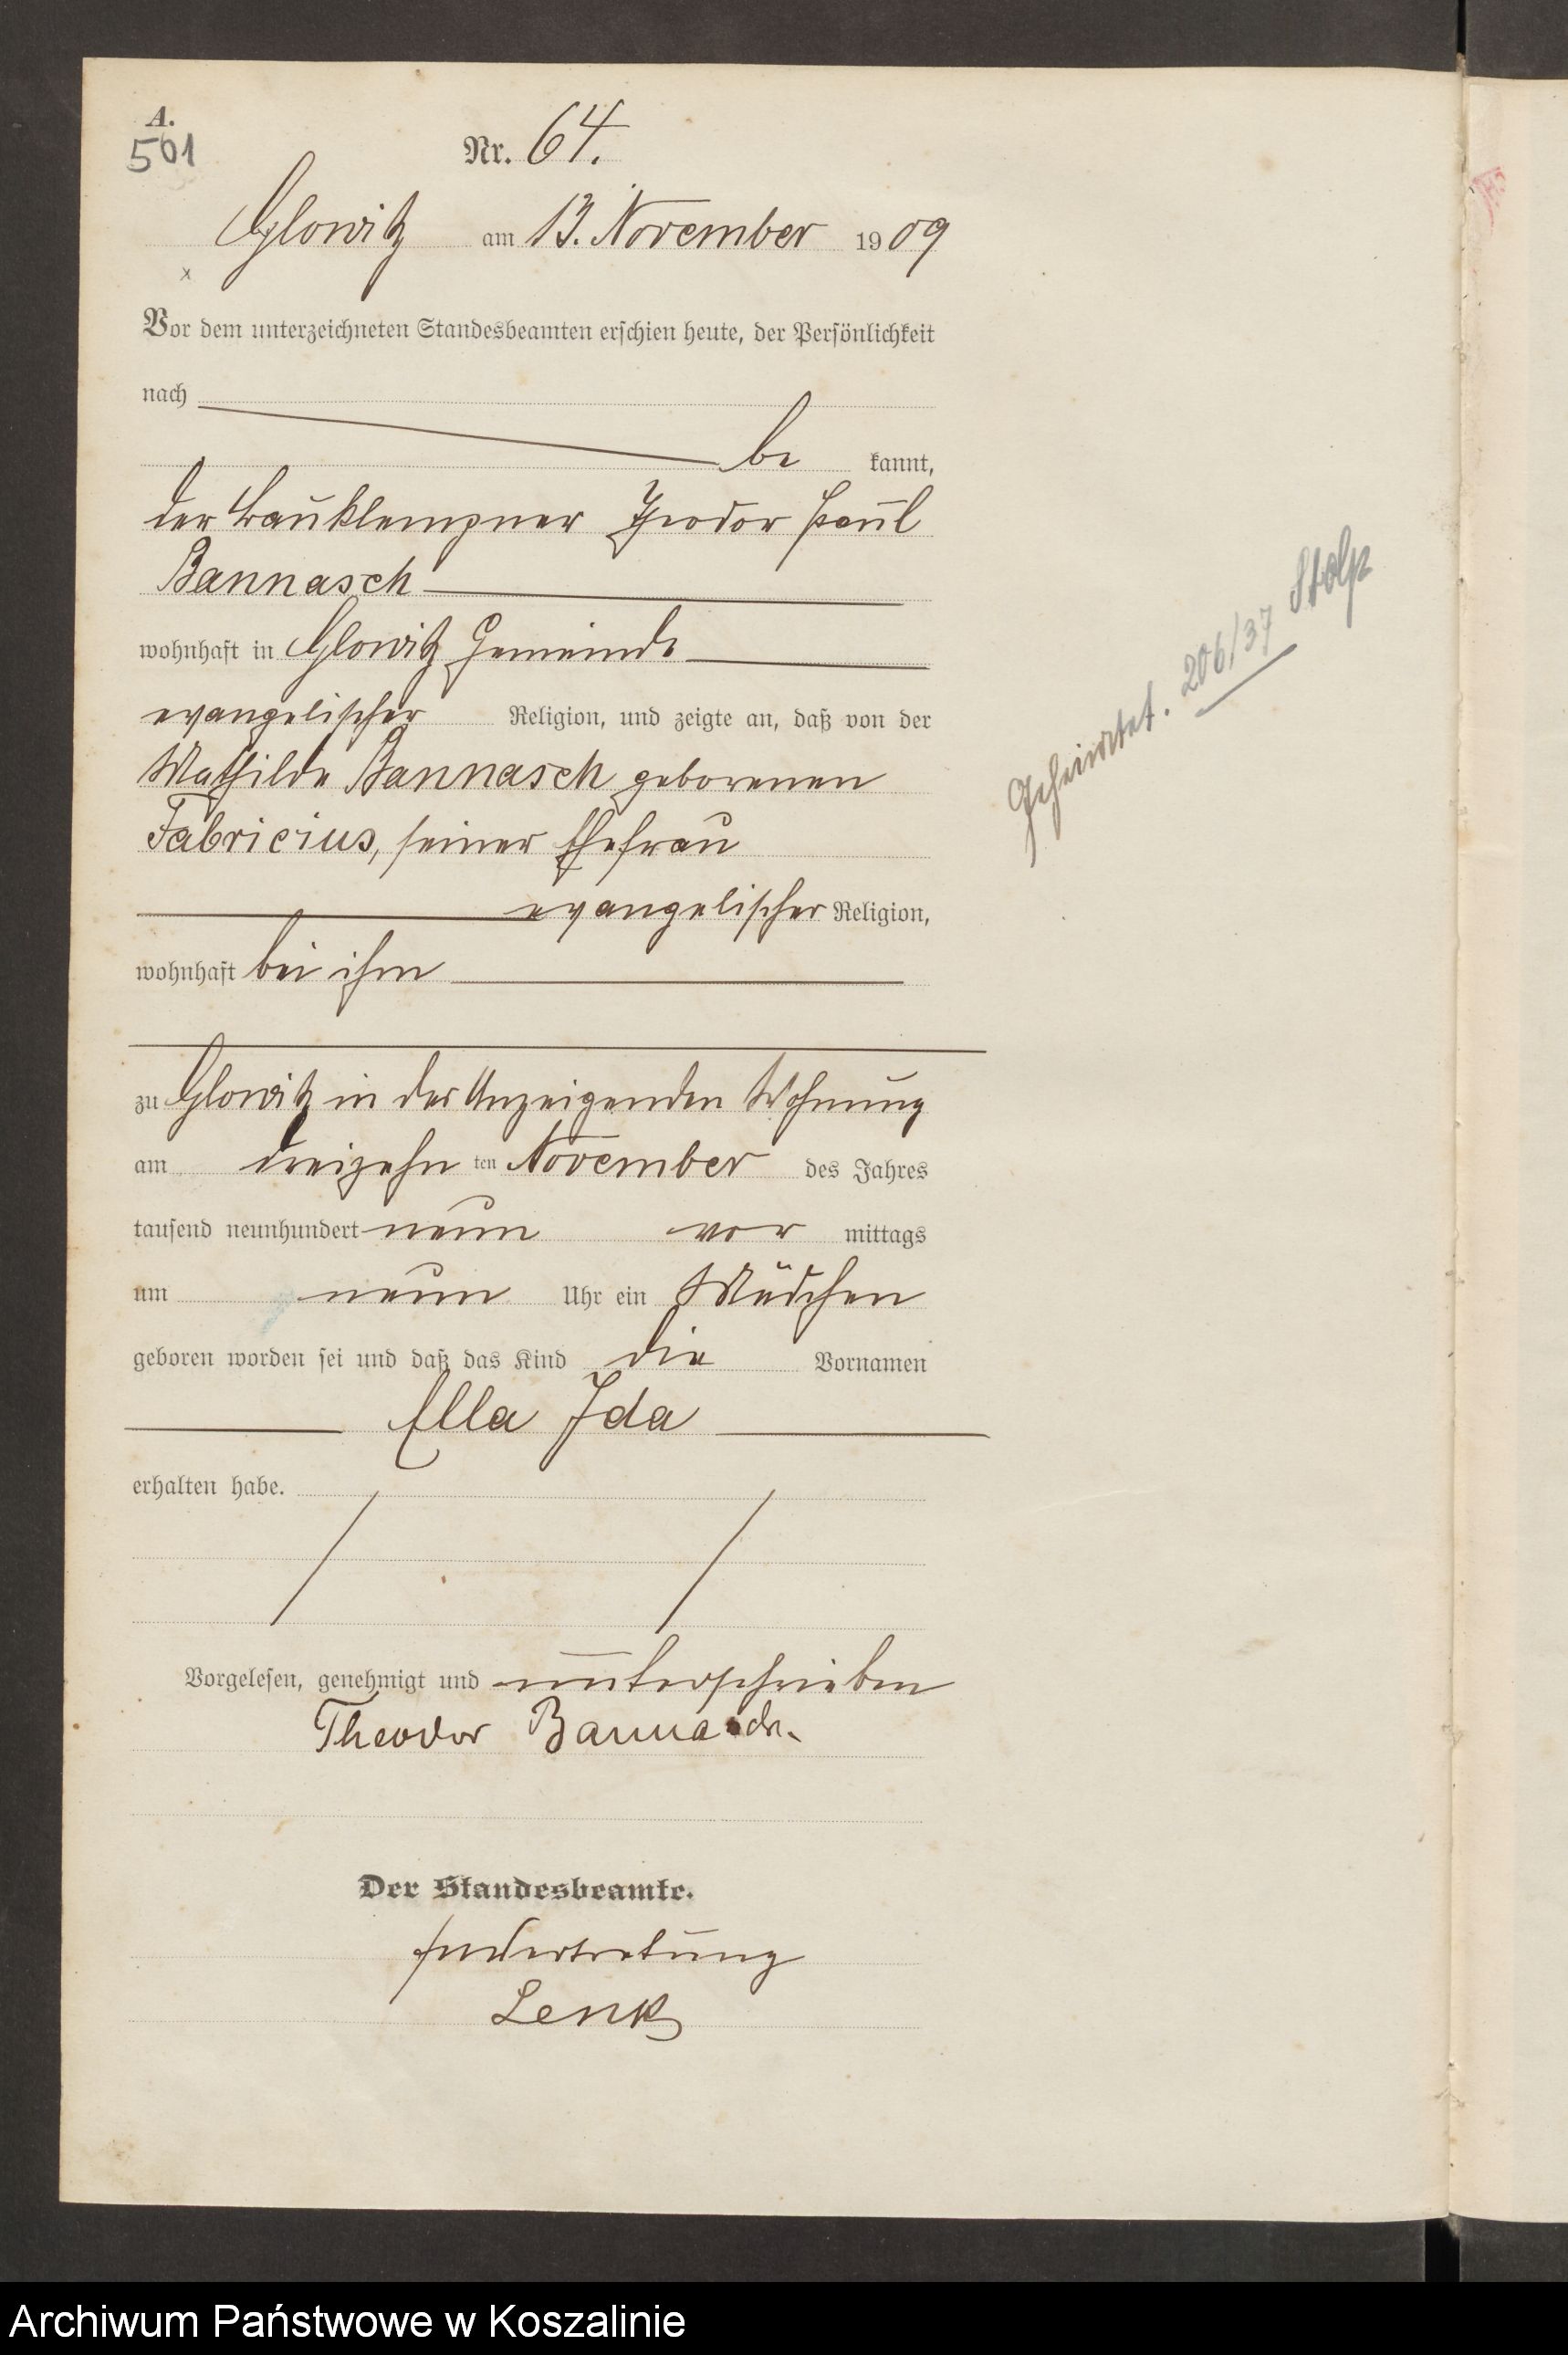 A.
501
Nr. 64.
Glowitz am 13. November 1909
Vor dem unterzeichneten Standesbeamten erschien heute, der Persönlichkeit
nach
be kannt,
der Bauklempner Theodor Paul
Bannasch
wohnhaft in Glowitz Gemeinde
evangelischer Religion, und zeigte an, daß von der
Mathilde Bannasch geborenen
Fabricius, seiner Ehefrau
evangelischer Religion,
wohnhaft bei ihm
zu Glowitz in der Anzeigenden Wohnung
am dreizehn ten November des Jahres
tausend neunhundert neun vor mittags
um neun Uhr ein Mädchen
geboren worden sei und daß das Kind die Vornamen
Ella Ida
erhalten habe.
Vorgelesen, genehmigt und unterschrieben
Theodor Bannasch.
Der Standesbeamte.
In Vertretung
Lenk
Geheiratet. 206/37 Stolp
Archiwum Państwowe w Koszalinie